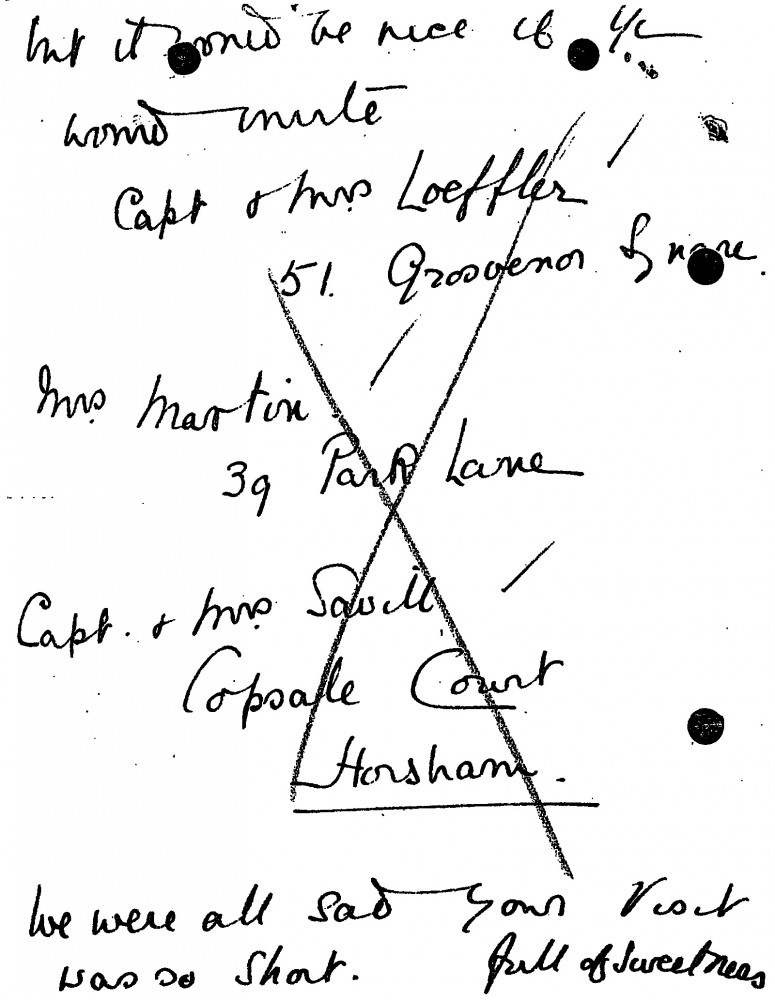 but it would be nice if Y/L
would invite
Capt & Mrs Loeffler
51. Grosvenor Square.
Mrs Martin
39 Park Lane
Capt. & Mrs Savill
Copsale Court
Horsham.
We were all sad your visit
was so short. full of sweetness